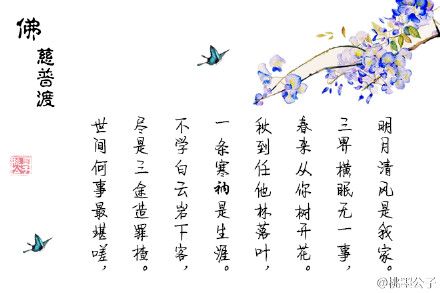 佛
慈普渡
世间何事最堪嗟，
尽是三途造罪楂。
不学白云岩下客，
一条寒衲是生涯。
秋到任他林落叶，
春来从你树开花。
三界横眠无一事，
明月清风是我家。
@桃墨公子